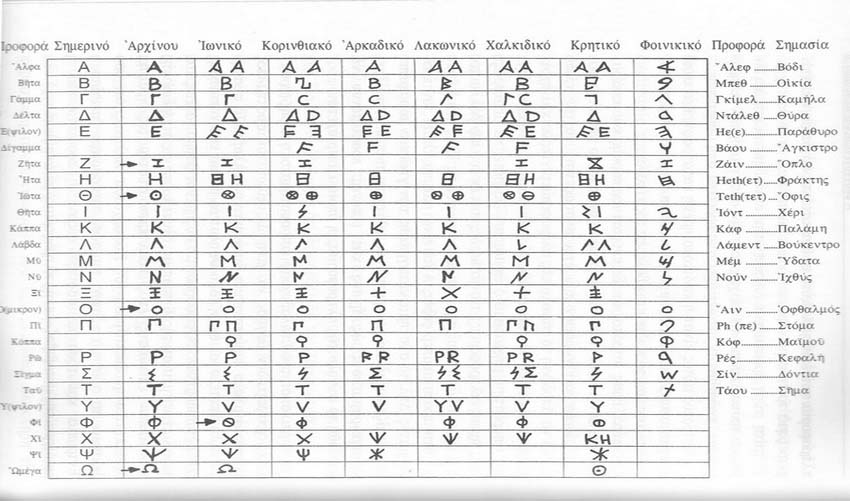 Προφορά Σημερινό Ἀρχίνου Ἰωνικό Κορινθιακό Ἀρκαδικό Λακωνικό Χαλκιδικό Κρητικό Φοινικικό Προφορά Σημασία
Ἄλφα Α Α Α Α Α Α Α Α Α Α Α Α Α Ἄλεφ ..........Βόδι
Βῆτα Β Β Β Β Β Β Μπεθ ..........Οἰκία
Γάμμα Γ Γ Γ C C Λ Γ C Γκίμελ ......Καμήλα
Δέλτα Δ Δ Δ Δ D Δ Δ Δ D Δ Ντάλεθ ......Θύρα
Ε(ψιλον) Ε Ε Ηε(ε)..........Παράθυρο
Δίγαμμα F F F F Βάου ..........Ἄγκιστρο
Ζῆτα Ζ Ζάιν..........Ὅπλο
Ἦτα Η Η Ηeth(ετ).....Φράκτης
Ἰῶτα Θ Teth(τετ)....Ὄφις
Θῆτα Ι Ι Ι Ι Ι Ι Ἰόντ ..........Χέρι
Κάππα Κ Κ Κ Κ Κ Κ Κ Κ Κάφ ..........Παλάμη
Λάβδα Λ Λ Λάμεντ ......Βούκεντρο
Μῦ Μ Μ Μ Μ Μ Μ Μ Μ Μέμ ..........Ὕδατα
Νῦ Ν Ν Ν Ν Ν Ν Ν Ν Νούν ..........Ἰχθύς
Ξῖ Ξ
Ο(μικρον) Ο Ο Ο Ο Ο Ο Ο Ο Ο Ἄιν ..........Ὀφθαλμός
Πῖ Π Γ Γ Π Γ Π Π Γ Π Γ Ph (πε) .....Στόμα
Κόππα Ϙ Ϙ Ϙ Ϙ Ϙ Φ Κόφ ..........Μαϊμοῦ
Ρῶ Ρ Ρ Ρ Ρ Ρ R Ρ R Ρ R Ρ Ρές ..........Κεφαλή
Σῖγμα Σ Σίν ..........Δόντια
Ταῦ Τ Τ Τ Τ Τ Τ Τ Τ Τάου ..........Σῆμα
Υ(ψιλον) Υ Υ V V V Υ V V Υ
Φῖ Φ Φ Φ Φ Φ
Χῖ Χ Χ Χ Χ Ψ Ψ Ψ ΚΗ
Ψῖ Ψ Ψ Ψ Ψ Ж Ж
Ὠμέγα Ω Ω Ω ⊙